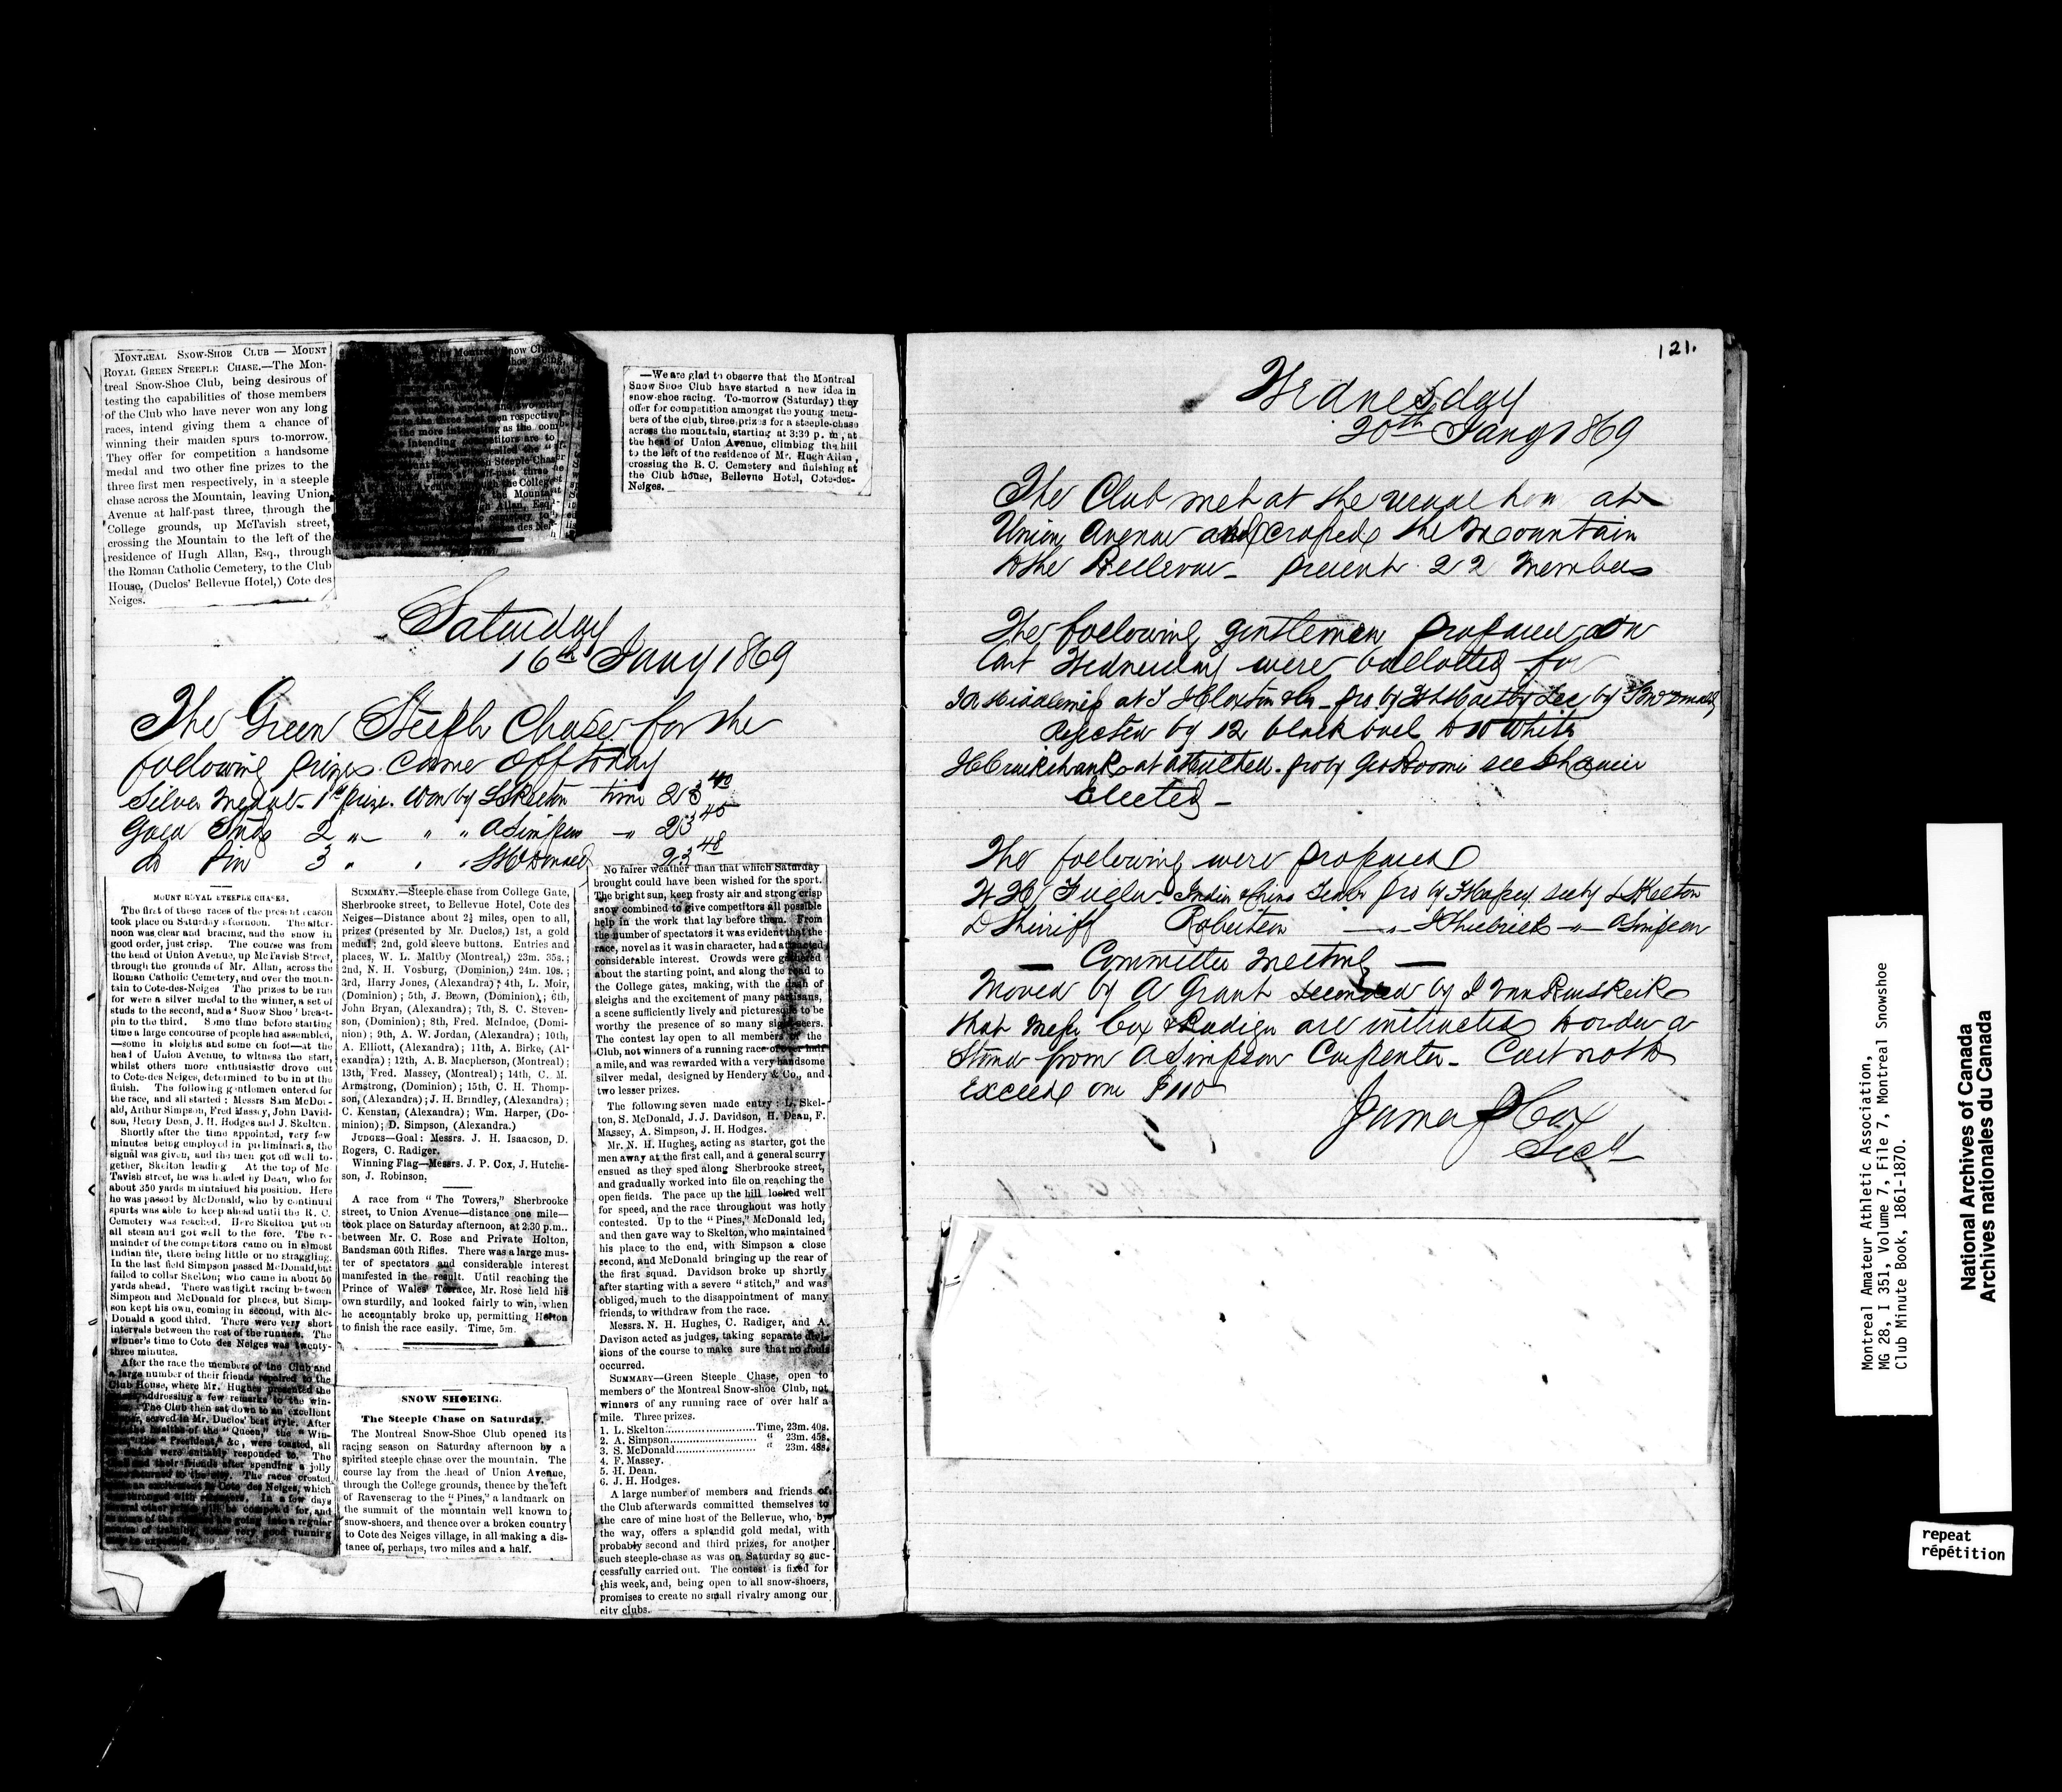 MONTREAL SNOW-SHOE CLUB — MOUNT
ROYAL GREEN STEEPLE CHASE.—The Mon-
treal Snow-Shoe Club, being desirous of
testing the capabilities of those members
of the Club who have never won any long
races, intend giving them a chance of
winning their maiden spurs to-morrow.
They offer for competition a handsome
medal and two other fine prizes to the
three first men respectively, in a steeple
chase across the Mountain, leaving Union
Avenue at half-past three, through the
College grounds, up McTavish street,
crossing the Mountain to the left of the
residence of Hugh Allan, Esq., through
the Roman Catholic Cemetery, to the Club
House, (Duclos' Bellevue Hotel,) Cote des
Neiges.
—We are glad to observe that the Montreal
Snow Shoe Club have started a new idea in
snow-shoe racing. To-morrow (Saturday) they
offer for competition amongst the young mem-
bers of the club, three prizes for a steeple-chase
across the mountain, starting at 3:30 p. m, at
the head of Union Avenue, climbing the hill
to the left of the residence of Mr. Hugh Allan,
crossing the R. C. Cemetery and finishing at
the Club house, Bellevue Hotel, Cote-des-
Neiges.
Saturday
16th Jany 1869
The Green Steeple Chase for the
following prizes came off today
Silver Medal - 1st prize. Won by L Skelton time 23 40
Gold Studs 2 " " " A Simpson " 23 45
do Pin 3 " " " S McDonald 23 48
MOUNT ROYAL STEEPLE CHASES.
The first of these races of the present season
took place on Saturday afternoon. The after-
noon was clear and bracing, and the snow in
good order, just crisp. The course was from
the head of Union Avenue, up McTavish Street,
through the grounds of Mr. Allan, across the
Roman Catholic Cemetery, and over the moun-
tain to Cote-des-Neiges The prizes to be run
for were a silver medal to the winner, a set of
studs to the second, and a "Snow Shoe" breast-
pin to the third. Some time before starting
time a large concourse of people had assembled,
—some in sleighs and some on foot—at the
head of Union Avenue, to witness the start,
whilst others more enthusiastic drove out
to Cote-des Neiges, determined to be in at the
finish. The following gentlemen entered for
the race, and all started: Messrs Sam McDon-
ald, Arthur Simpson, Fred Massey, John David-
son, Henry Dean, J. H. Hodges and J. Skelton.
Shortly after the time appointed, very few
minutes being employed in preliminaries, the
signal was given, and the men got off well to-
gether, Skelton leading At the top of Mc-
Tavish street, he was headed by Dean, who for
about 350 yards maintained his position. Here
he was passed by McDonald, who by continual
spurts was able to keep ahead until the R. C.
Cemetery was reached. Here Skelton put on
all steam and got well to the fore. The re-
mainder of the competitors came on in almost
Indian file, there being little or no straggling.
In the last field Simpson passed McDonald, but
failed to collar Skelton; who came in about 50
yards ahead. There was tight racing between
Simpson and McDonald for places, but Simp-
son kept his own, coming in second, with Mc-
Donald a good third. There were very short
intervals between the rest of the runners. The
winner's time to Cote des Neiges was twenty-
three minutes.
After the race the members of the Club and
a large number of their friends repaired to the
Club House, where Mr. Hughes presented the
addressing a few remarks to the win-
The Club then sat down to an excellent
served in Mr. Duclos' best style. After
the healths of the "Queen," the "Win-
the "President," &c, were toasted, all
which were suitably responded to. The
and their friends after spending a jolly
SUMMARY.—Steeple-chase from College Gate,
Sherbrooke street, to Bellevue Hotel, Cote des
Neiges—Distance about 2½ miles, open to all,
prizes (presented by Mr. Duclos,) 1st, a gold
medal; 2nd, gold sleeve buttons. Entries and
places, W. L. Maltby (Montreal,) 23m. 35s.;
2nd, N. H. Vosburg, (Dominion,) 24m. 10s.;
3rd, Harry Jones, (Alexandra); 4th, L. Moir,
(Dominion); 5th, J. Brown, (Dominion); 6th,
John Bryan, (Alexandra); 7th, S. C. Steven-
son, (Dominion); 8th, Fred. McIndoe, (Domi-
nion); 9th, A. W. Jordan, (Alexandra); 10th,
A. Elliott, (Alexandra); 11th, A. Birke, (Al-
exandra); 12th, A. B. Macpherson, (Montreal);
13th, Fred. Massey, (Montreal); 14th, C. M.
Armstrong, (Dominion); 15th, C. H. Thomp-
son, (Alexandra); J. H. Brindley, (Alexandra);
C. Kenstan, (Alexandra); Wm. Harper, (Do-
minion); D. Simpson, (Alexandra.)
JUDGES—Goal: Messrs. J. H. Isaacson, D.
Rogers, C. Radiger.
Winning Flag—Messrs. J. P. Cox, J. Hutche-
son, J. Robinson.
A race from "The Towers," Sherbrooke
street, to Union Avenue—distance one mile—
took place on Saturday afternoon, at 2.30 p.m.,
between Mr. C. Rose and Private Holton,
Bandsman 60th Rifles. There was a large mus-
ter of spectators and considerable interest
manifested in the result. Until reaching the
Prince of Wales' Terrace, Mr. Rose held his
own sturdily, and looked fairly to win, when
he accountably broke up, permitting Holton
to finish the race easily. Time, 5m.
SNOW SHOEING.
The Steeple Chase on Saturday.
The Montreal Snow-Shoe Club opened its
racing season on Saturday afternoon by a
spirited steeple chase over the mountain. The
course lay from the head of Union Avenue,
through the College grounds, thence by the left
of Ravenscrag to the "Pines," a landmark on
the summit of the mountain well known to
snow-shoers, and thence over a broken country
to Cote des Neiges village, in all making a dis-
tance of, perhaps, two miles and a half.
No fairer weather than that which Saturday
brought could have been wished for the sport.
The bright sun, keen frosty air and strong crisp
snow combined to give competitors all possible
help in the work that lay before them. From
the number of spectators it was evident that the
race, novel as it was in character, had attracted
considerable interest. Crowds were gathered
about the starting point, and along the road to
the College gates, making, with the dash of
sleighs and the excitement of many partisans,
a scene sufficiently lively and picturesque to be
worthy the presence of so many sight-seers.
The contest lay open to all members of the
Club, not winners of a running race of over half
a mile, and was rewarded with a very handsome
silver medal, designed by Hendery & Co., and
two lesser prizes.
The following seven made entry: L. Skel-
ton, S. McDonald, J. J. Davidson, H. Dean, F.
Massey, A. Simpson, J. H. Hodges.
Mr. N. H. Hughes, acting as starter, got the
men away at the first call, and a general scurry
ensued as they sped along Sherbrooke street,
and gradually worked into file on reaching the
open fields. The pace up the hill looked well
for speed, and the race throughout was hotly
contested. Up to the "Pines," McDonald led,
and then gave way to Skelton, who maintained
his place to the end, with Simpson a close
second, and McDonald bringing up the rear of
the first squad. Davidson broke up shortly
after starting with a severe "stitch," and was
obliged, much to the disappointment of many
friends, to withdraw from the race.
Messrs. N. H. Hughes, C. Radiger, and A.
Davison acted as judges, taking separate divi-
sions of the course to make sure that no fouls
occurred.
SUMMARY—Green Steeple Chase, open to
members of the Montreal Snow-shoe Club, not
winners of any running race of over half a
mile. Three prizes.
1. L. Skelton..............Time, 23m. 40s.
2. A. Simpson.............. " 23m. 45s.
3. S. McDonald.............. " 23m. 48s.
4. F. Massey.
5. H. Dean.
6. J. H. Hodges.
A large number of members and friends of
the Club afterwards committed themselves to
the care of mine host of the Bellevue, who, by
the way, offers a splendid gold medal, with
probably second and third prizes, for another
such steeple-chase as was on Saturday so suc-
cessfully carried out. The contest is fixed for
this week, and, being open to all snow-shoers,
promises to create no small rivalry among our
city clubs.
121.
Wednesday
20th Jany 1869
The Club met at the usual hour at
Union Avenue and crossed the Mountain
to the Bellevue - present 22 members
The following gentlemen proposed on
last Wednesday were balloted for
rejected by 12 black ball to 10 White
Elected -
The following were proposed
D Shirriff Robertson A Simpson
— Committee Meeting —
Moved by A Grant seconded by
that Messrs Cox & Radiger are instructed to order a
Stand from A. Simpson Carpenter - Cost not to
exceed one $100
James P Cox
Secy
Montreal Amateur Athletic Association,
MG 28, I 351, Volume 7, File 7, Montreal Snowshoe
Club Minute Book, 1861-1870.
National Archives of Canada
Archives nationales du Canada
repeat
répétition